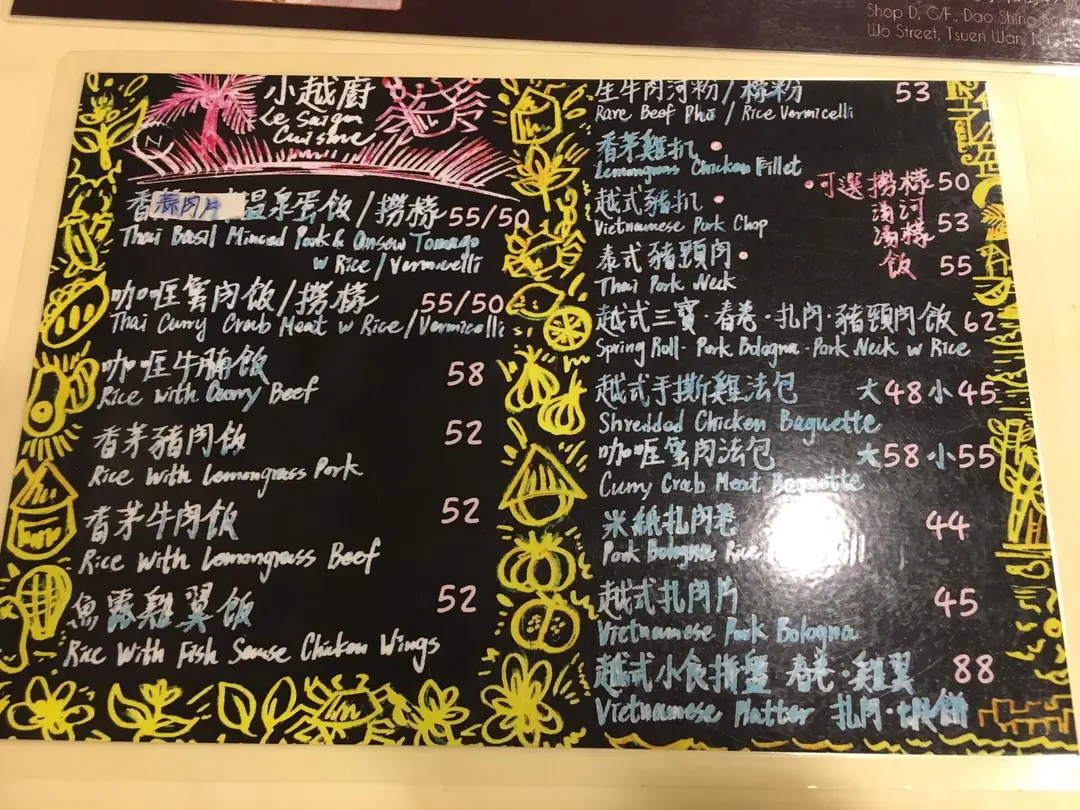 Shop D, G/F, Dao Shing Bu
Wo Street, Tsuen Wan, N.T.
小越廚
Le Saigon
Cuisine
香蒜肉片 溫泉蛋飯/撈檬 55/50
Thai Basil Minced Pork & Onsen Tomago
w Rice/Vermicelli
咖喱蟹肉飯/撈檬 55/50
Thai Curry Crab Meat w Rice/Vermicelli
咖喱牛腩飯 58
Rice with Curry Beef
香茅豬肉飯 52
Rice with Lemongrass Pork
香茅牛肉飯 52
Rice with Lemongrass Beef
魚露雞翼飯 52
Rice With Fish Sause Chicken Wings
生牛肉河粉/檬粉 53
Rare Beef Phở / Rice Vermicelli
香茅雞扒
Lemongrass Chicken Fillet
可選撈檬 50
越式豬扒
湯河
Vietnamese Pork Chop
湯檬 53
泰式豬頸肉
飯 55
Thai Pork Neck
越式三寶·春卷·扎肉·豬頸肉飯 62
Spring Roll · Pork Bologna · Pork Neck w Rice
越式手撕雞法包 大48小45
Shredded Chicken Baguette
咖喱蟹肉法包 大58小55
Curry Crab Meat Baguette
米紙扎肉卷 44
Pork Bologna Rice
越式扎肉片 45
Vietnamese Pork Bologna
越式小食拼盤 春卷·雞翼 88
Vietnamese Platter 扎肉·蝦餅